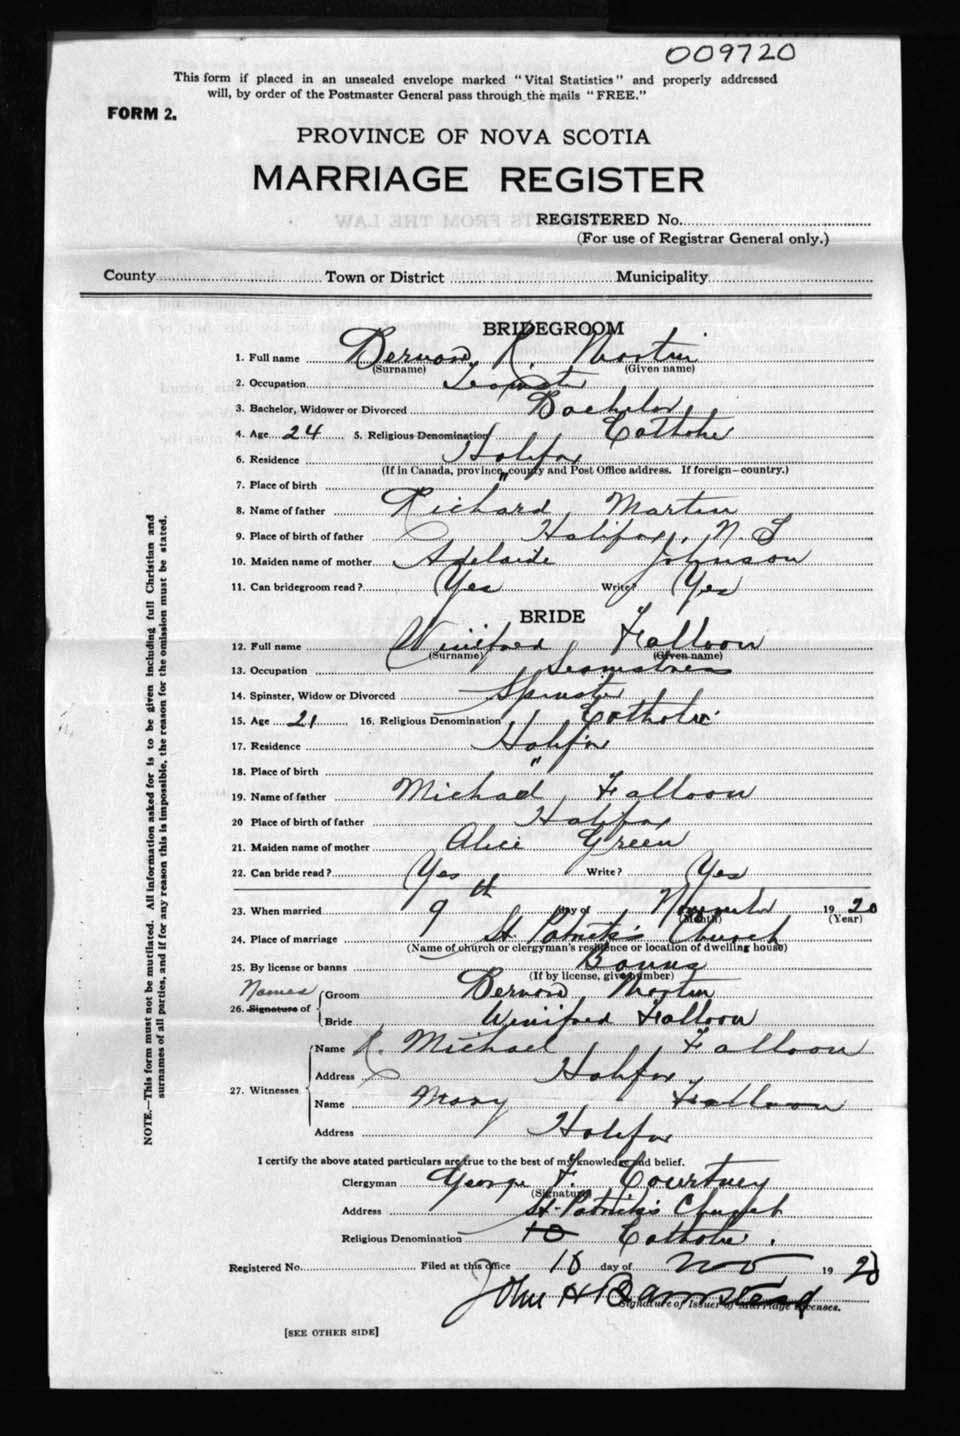 009720
This form if placed in an unsealed envelope marked "Vital Statistics" and properly addressed
will, by order of the Postmaster General pass through the mails "FREE."
FORM 2.
PROVINCE OF NOVA SCOTIA
MARRIAGE REGISTER
REGISTERED No.
(For use of Registrar General only.)
County Town or District Municipality
BRIDEGROOM
1. Full name Bernard R. Martin
(Surname) (Given name)
2. Occupation Teamster
3. Bachelor, Widower or Divorced Bachelor
4. Age 24 5. Religious Denomination Catholic
6. Residence Halifax
(If in Canada, province, county and Post Office address. If foreign—country.)
7. Place of birth "
8. Name of father Richard Martin
9. Place of birth of father Halifax, N.S
10. Maiden name of mother Adelaide Johnson
11. Can bridegroom read? Yes Write? Yes
BRIDE
12. Full name Winifred Falloon
(Surname) (Given name)
13. Occupation Seamstress
14. Spinster, Widow or Divorced Spinster
15. Age 21 16. Religious Denomination Catholic
17. Residence Halifax
18. Place of birth "
19. Name of father Michael Falloon
20 Place of birth of father Halifax
21. Maiden name of mother Alice Green
22. Can bride read? Yes Write? Yes
23. When married 9th day of November 1920
(Month) (Year)
24. Place of marriage St Patrick's Church
(Name of church or clergyman's residence or location of dwelling house)
25. By license or banns Banns
(If by license, give number)
Names
26. Signature of Groom Bernard Martin
Bride Winifred Falloon
27. Witnesses Name R. Michael Falloon
Address Halifax
Name Mary Falloon
Address Halifax
I certify the above stated particulars are true to the best of my knowledge and belief.
Clergyman George F. Courtney
(Signature)
Address St. Patrick's Church
Religious Denomination Catholic.
Registered No. Filed at this office 10 day of Nov 1920
John H Barnstead
Signature of Issuer of Marriage Licenses.
[SEE OTHER SIDE]
NOTE.—This form must not be mutilated. All information asked for is to be given including full Christian and
surnames of all parties, and if for any reason this is impossible, the reason for the omission must be stated.